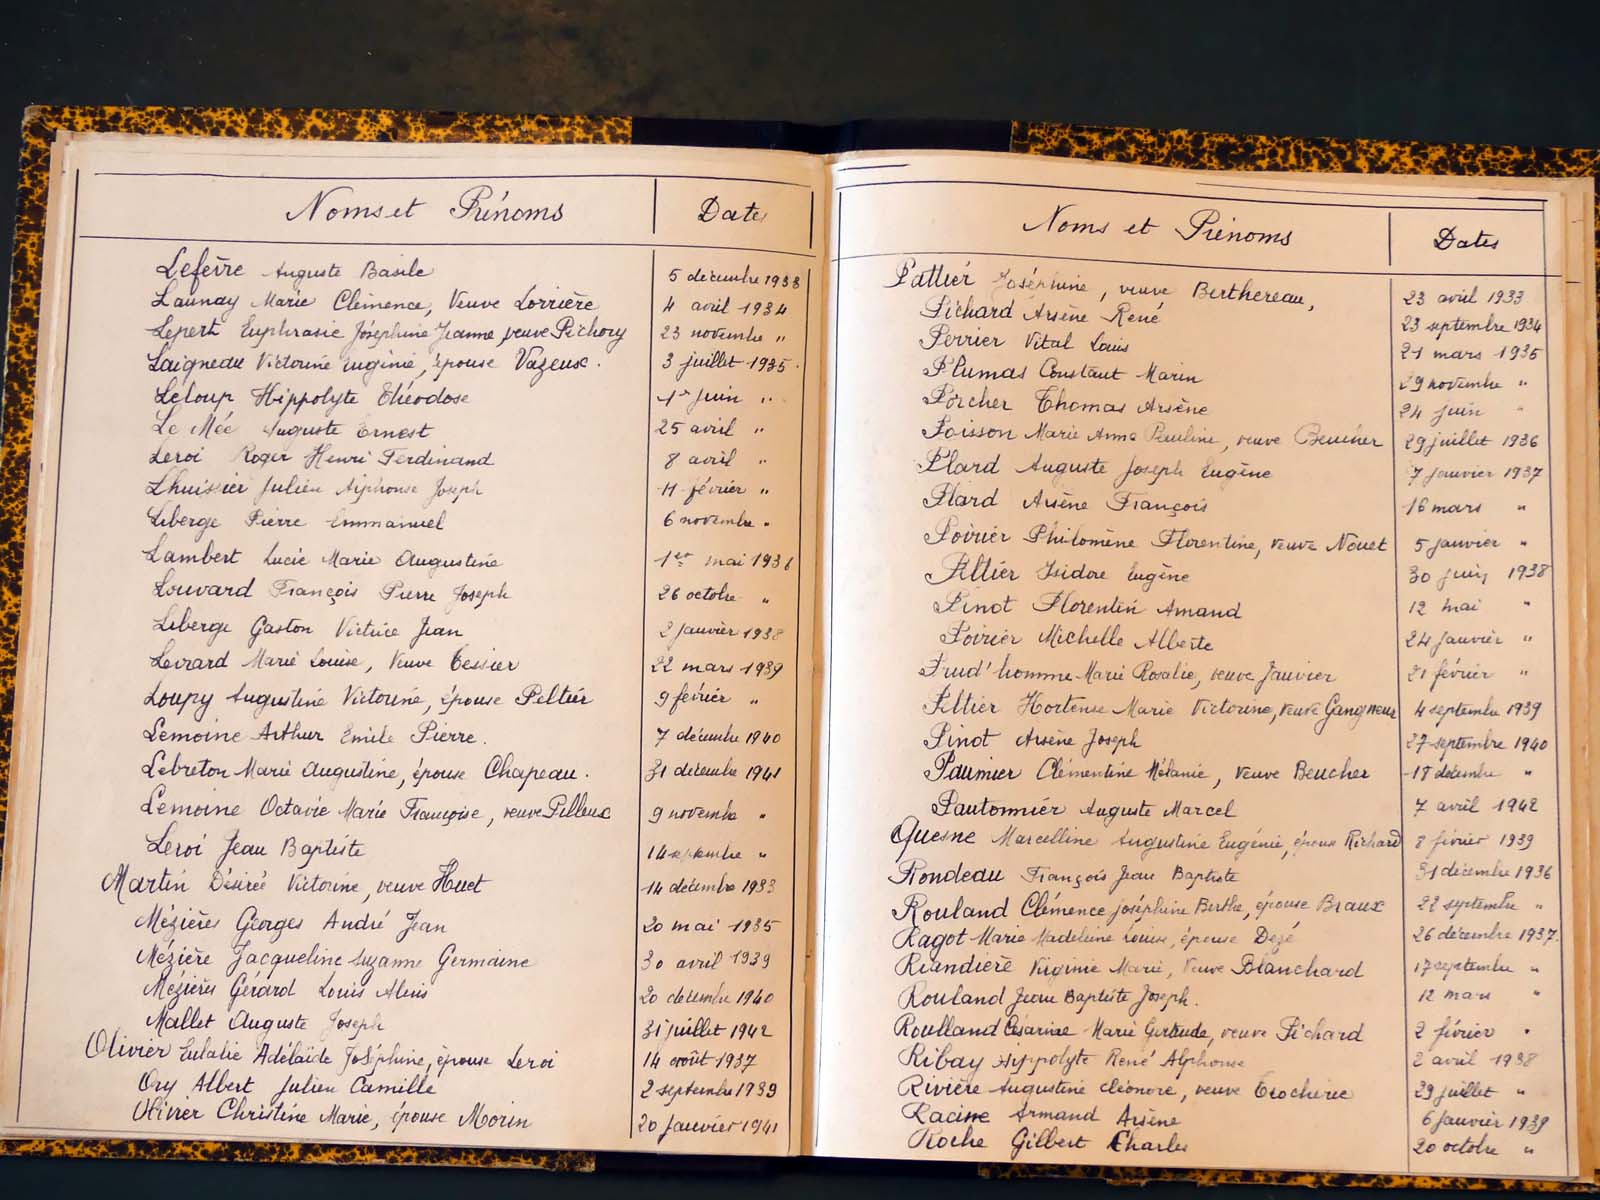 Noms et Prénoms Dates
Lefèvre Auguste Basile 5 décembre 1933
Launay Marie Clémence, Veuve Lorrière 4 avril 1934
Lepert Euphrasie Joséphine Jeanne, veuve Pichory 23 novembre "
Laigneau Victorine Eugénie, épouse Vazeux. 3 juillet 1935.
Leloup Hippolyte Théodose 1er juin "
Le Mée Auguste Ernest 25 avril "
Leroi Roger Henri Ferdinand 8 avril "
Lhuissier Julien Alphonse Joseph 11 février "
Liberge Pierre Emmanuel 6 novembre "
Lambert Lucie Marie Augustine 1er mai 1936
Louvard François Pierre Joseph 26 octobre "
Liberge Gaston Victrice Jean 2 janvier 1938
Levrard Marie Louise, Veuve Tessier 22 mars 1939
Loupy Augustine Victorine, épouse Peltier 9 février "
Lemoine Arthur Emile Pierre. 7 décembre 1940
Lebreton Marie Augustine, épouse Chapeau. 31 décembre 1941
Lemoine Octavie Marie Françoise, veuve Pilleux 9 novembre "
Leroi Jean Baptiste 14 septembre "
Martin Désirée Victorine, veuve Huet 14 décembre 1933
Mézières Georges André Jean 20 mai 1935
Mézière Jacqueline Suzanne Germaine 30 avril 1939
Mézières Gérard Louis Alexis 20 décembre 1940
Mallet Auguste Joseph 31 juillet 1942
Olivier Eulalie Adélaïde Joséphine, épouse Leroi 14 août 1937
Ory Albert Julien Camille 2 septembre 1939
Olivier Christine Marie, épouse Morin 20 janvier 1941
Noms et Prénoms Dates
Pattier Joséphine, veuve Berthereau, 23 avril 1933
Pichard Arsène René 23 septembre 1934
Perrier Vital Louis 21 mars 1935
Plumas Constant Marin 29 novembre "
Porcher Thomas Arsène 24 juin "
Poisson Marie Anne Pauline, veuve Beucher 29 juillet 1936
Plard Auguste Joseph Eugène 7 janvier 1937
Plard Arsène François 16 mars "
Poirier Philomène Florentine, veuve Nouet 5 janvier "
Peltier Isidore Eugène 30 juin 1938
Pinot Florentin Amand 12 mai "
Poirier Michelle Alberte 24 janvier "
Prud'homme Marie Rosalie, veuve Janvier 21 février "
Peltier Hortense Marie Victorine, veuve Gangneux 4 septembre 1939
Pinot Arsène Joseph 27 septembre 1940
Paumier Clémentine Mélanie, Veuve Beucher 18 décembre "
Pautonnier Auguste Marcel 7 avril 1942
Quesne Marcelline Augustine Eugénie, épouse Richard 8 février 1939
Rondeau François Jean Baptiste 31 décembre 1936
Rouland Clémence Joséphine Berthe, épouse Braux 22 septembre "
Ragot Marie Madeleine Louise, épouse Dezé 26 décembre 1937.
Riandière Virginie Marie, Veuve Blanchard 17 septembre "
Rouland Jean Baptiste Joseph. 12 mars "
Roulland Césarine Marie Gertrude, veuve Pichard 2 février "
Ribay Hippolyte René Alphonse 2 avril 1938
Rivière Augustine Eléonore, veuve Trocherie 29 juillet "
Racine Armand Arsène 6 janvier 1939
Roche Gilbert Charles 20 octobre "